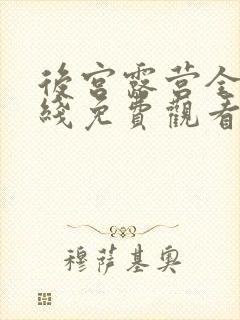 後宮露营全
綫免費觀看
穆萨基奥